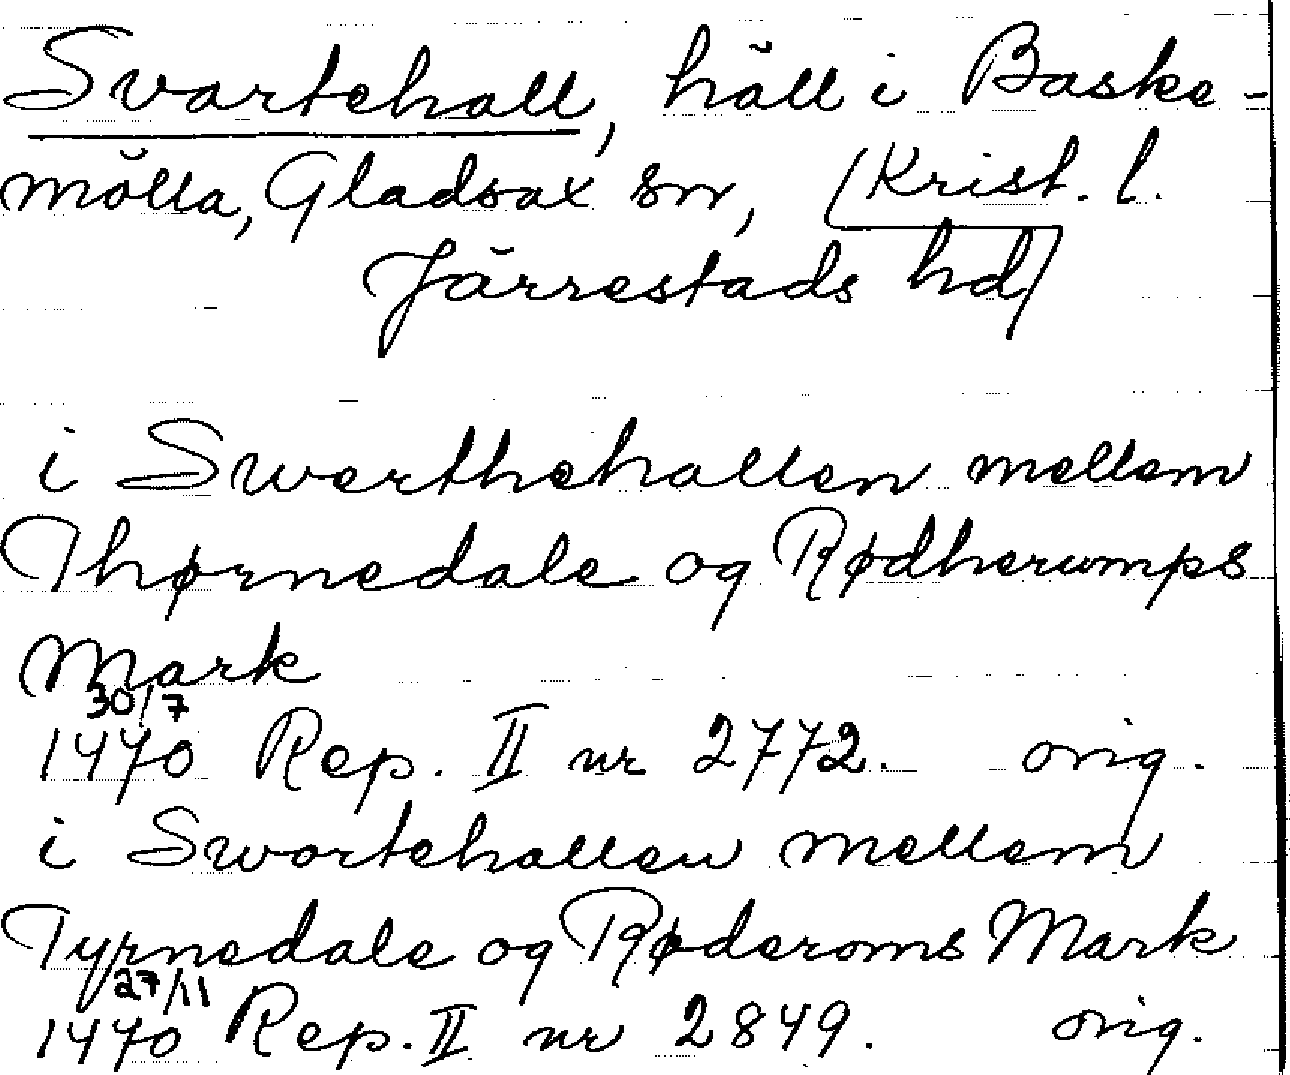 Svartehall, häll i Baske-
mölla, Gladsax sn, (Krist. l.
Järrestads hd)
i Swerthehallen mellem
Thørnedale og Rødherumps
Mark
30/7
1470 Rep. II nr 2772. orig.
i Swortehallen mellem
Tyrnedale og Røderoms Mark
27/11
1470 Rep. II nr 2849. orig.